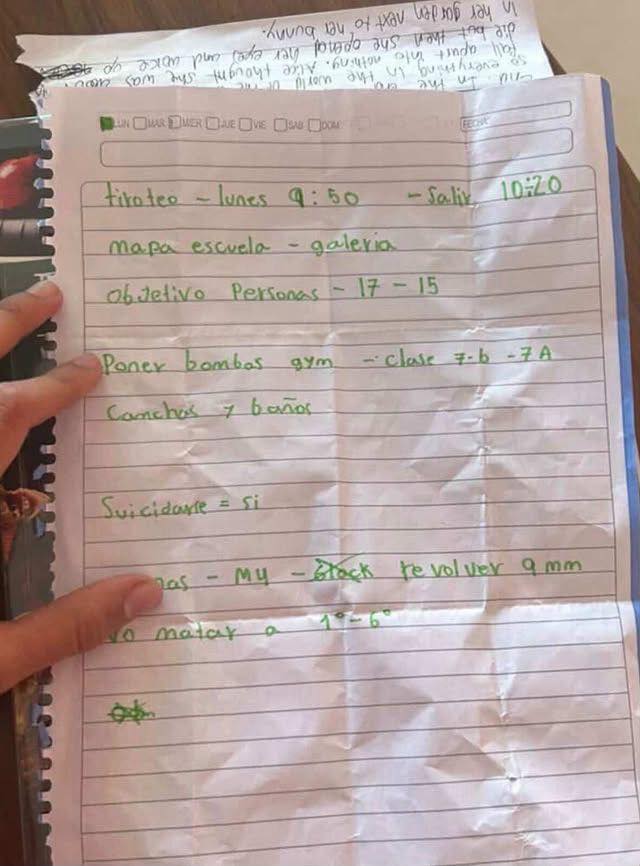 And In the
so everything in the world
fall apart into nothing. Alice thought she was
die but then she opend her eyes and woke up
in her garden next to her bunny.
LUN MAR MIER JUE VIE SAB DOM FECHA:
tiroteo - lunes 9:50 - Salir 10:20
mapa escuela - galeria
objetivo Personas - 17 - 15
Poner bombas gym - clase 7-b - 7A
Canchas y baños
Suicidarse = si
- M4 - revolver 9mm
matar a 1° - 6°